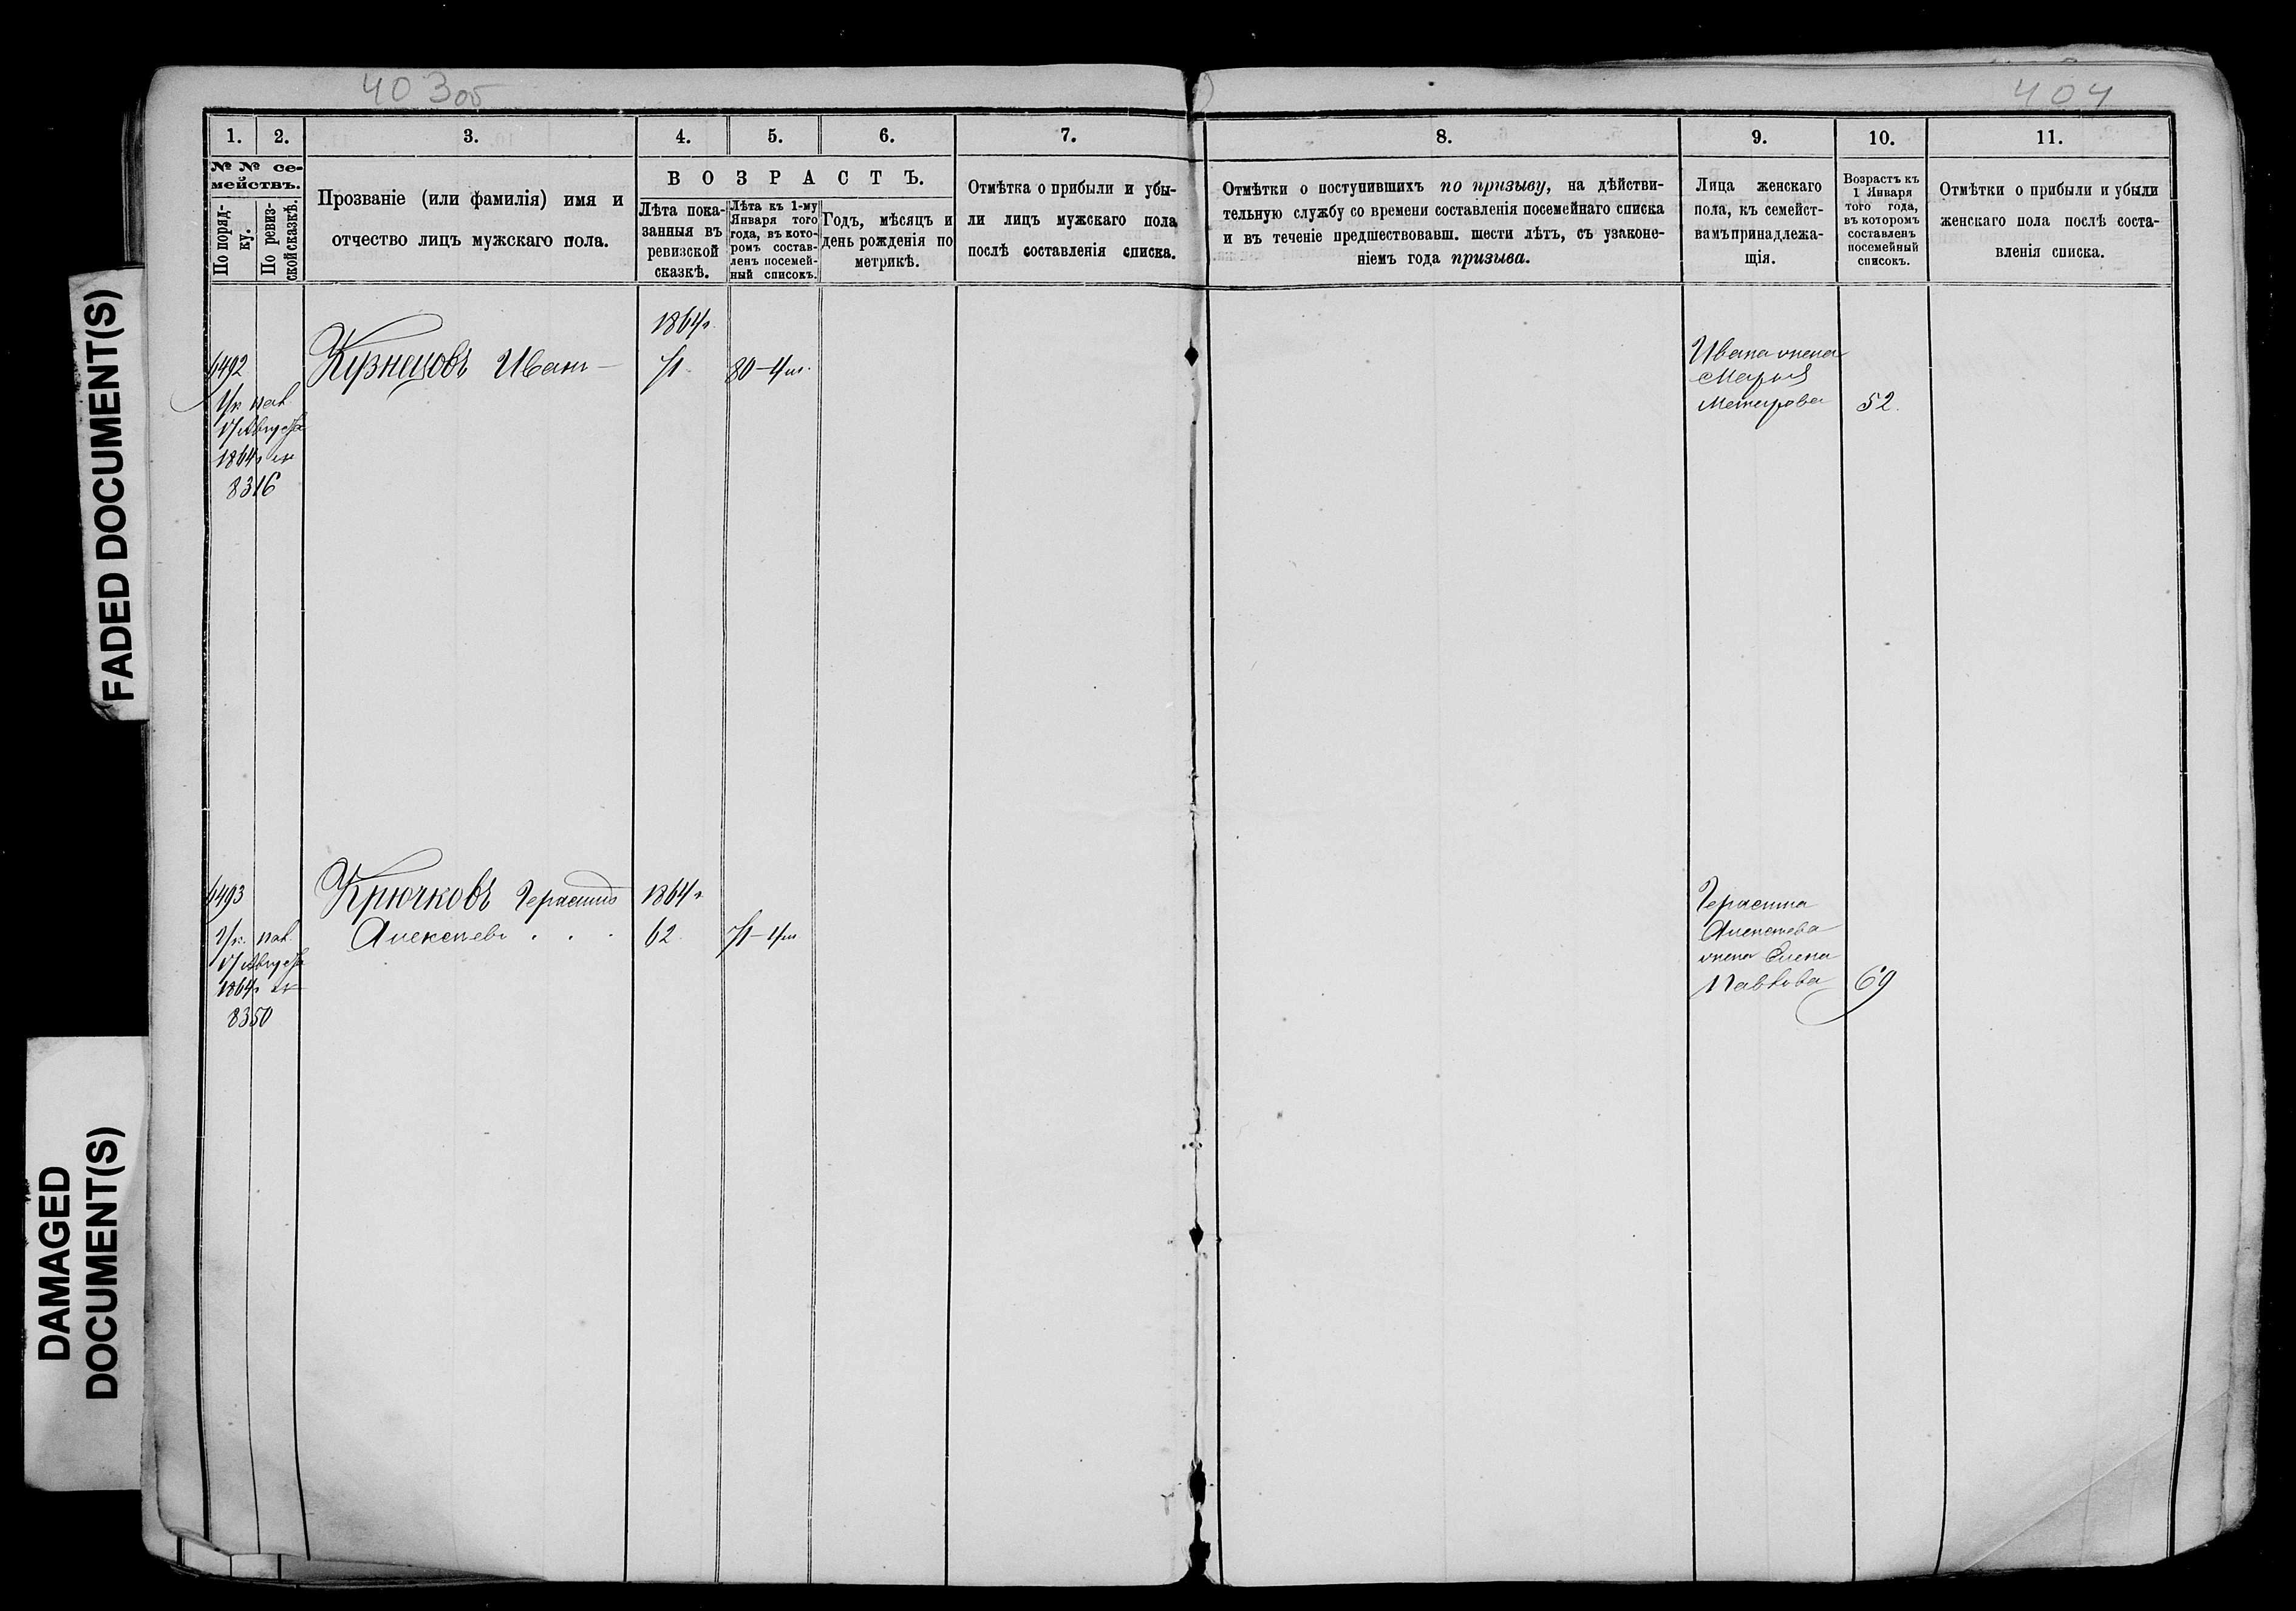 403об
404
1.
2.
3.
4.
5.
6.
7.
8.
9.
10.
11.
№ № се-
мействъ.
По поряд-
ку.
По ревиз-
ской сказкѣ.
Прозваніе (или фамилія) имя и
отчество лицъ мужскаго пола.
ВОЗРАСТЪ.
Лѣта пока-
занныя въ
ревизской
сказкѣ.
Лѣта къ 1-му
Января того
года, въ кото-
ромъ состав-
ленъ посемей-
ный списокъ.
Годъ, мѣсяцъ и
день рожденія по
метрикѣ.
Отмѣтка о прибыли и убы-
ли лицъ мужскаго пола
послѣ составленія списка.
Отмѣтки о поступившихъ по призыву, на дѣйстви-
тельную службу со времени составленія посемейнаго списка
и въ теченіе предшествовавш. шести лѣтъ, съ узаконе-
ніемъ года призыва.
Лица женскаго
пола, къ семейст-
вамъ принадлежа-
щія.
Возрастъ къ
1 Января
того года,
въ которомъ
составленъ
посемейный
списокъ.
Отмѣтки о прибыли и убыли
женскаго пола послѣ соста-
вленія списка.
1864г.
6492
Кузнецовъ Иванъ
71
80-4м.
Ук. пал.
17 Августа
1864г. №
8316
Ивана жена
Марья
52.
6493
Крючковъ Герасимъ
1864г.
Алексѣевъ . . .
62
71-4м
Ук. пал.
17 Августа
1864г. №
8350
Герасима
Алексѣева
жена Елена
Павлова
69
FADED DOCUMENT(S)
DAMAGED
DOCUMENT(S)